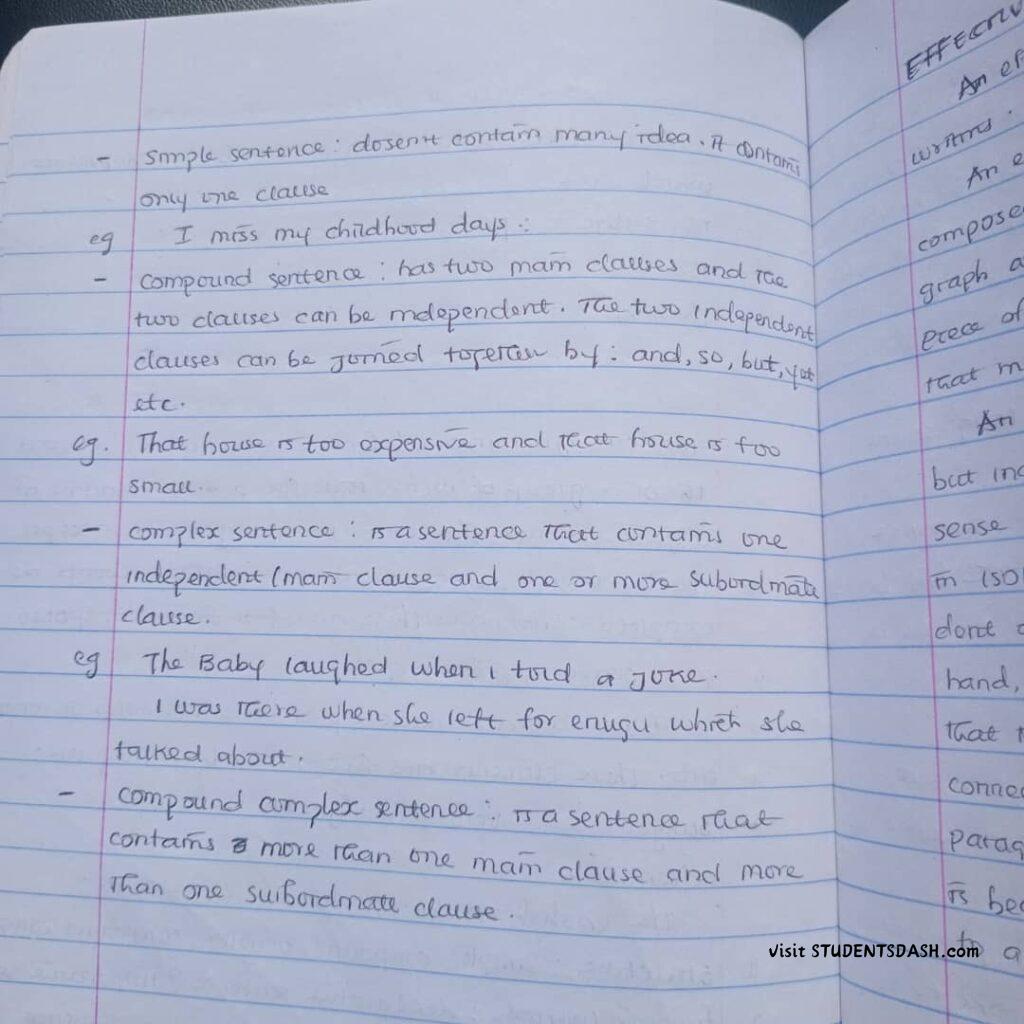 - simple sentence : dosen't contain many idea. It contains
only one clause
eg I miss my childhood days.
- compound sentence : has two main clauses and the
two clauses can be independent. The two independent
clauses can be joined together by : and, so, but, yet
etc.
eg. That house is too expensive and that house is too
small.
- complex sentence : is a sentence that contains one
independent (main clause and one or more subordinate
clause.
eg The Baby laughed when i told a joke.
I was there when she left for enugu which she
talked about.
- compound complex sentence : is a sentence that
contains more than one main clause and more
than one suibordinate clause.
EFFECTIV
An ef
writing.
An e
compose
graph a
piece of
that m
An
but ind
sense
in iso
dont
hand,
that
connec
parag
is bec
to a
visit STUDENTSDASH.com